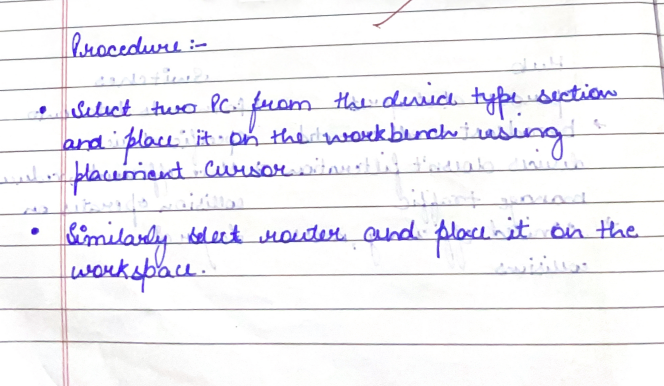 Procedure :-
• Select two PC. from the device type section
and place it on the workbench using
placement cursor
• Similarly select router and place it on the
workspace.